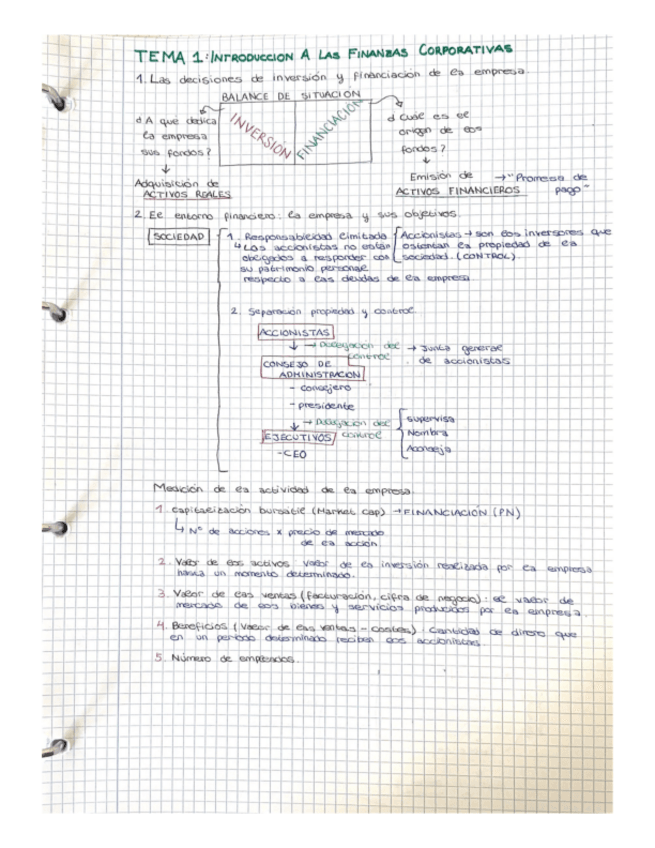 TEMA 1: INTRODUCCION A LAS FINANZAS CORPORATIVAS
1. Las decisiones de inversión y financiación de la empresa.
BALANCE DE SITUACIÓN
¿A que dedica
la empresa
sus fondos?
↓
Adquisición de
ACTIVOS REALES
INVERSIÓN
FINANCIACIÓN
¿Cual es el
origin de los
fondos?
↓
Emisión de → "Promesa de
ACTIVOS FINANCIEROS pago"
2. El entorno financiero: la empresa y sus objetivos.
SOCIEDAD
1. Responsabilidad limitada
↳ Los accionistas no están
obligados a responder con
su patrimonio personal
respecto a las deudas de la empresa
Accionistas → son los inversores que
ostentan la propiedad de la
sociedad. (CONTROL)
2. Separación propiedad y control.
ACCIONISTAS
↓ → Delegación del control → Junta general
de accionistas
CONSEJO DE
ADMINISTRACION
- consejero
- presidente
↓ → Delegación del control
Supervisa
Nombra
Aconseja
EJECUTIVOS
- CEO
Medición de la actividad de la empresa
1. Capitalización bursátil (Market cap) → FINANCIACIÓN (PN)
↳ Nº de acciones x precio de mercado
de la acción
2. Valor de los activos: valor de la inversión realizada por la empresa
hasta un momento determinado.
3. Valor de las ventas (facturación, cifra de negocio): el valor de
mercado de los bienes y servicios producidos por la empresa.
4. Beneficios (Valor de las ventas - costes): Cantidad de dinero que
en un periodo determinado reciben los accionistas.
5. Número de empleados.